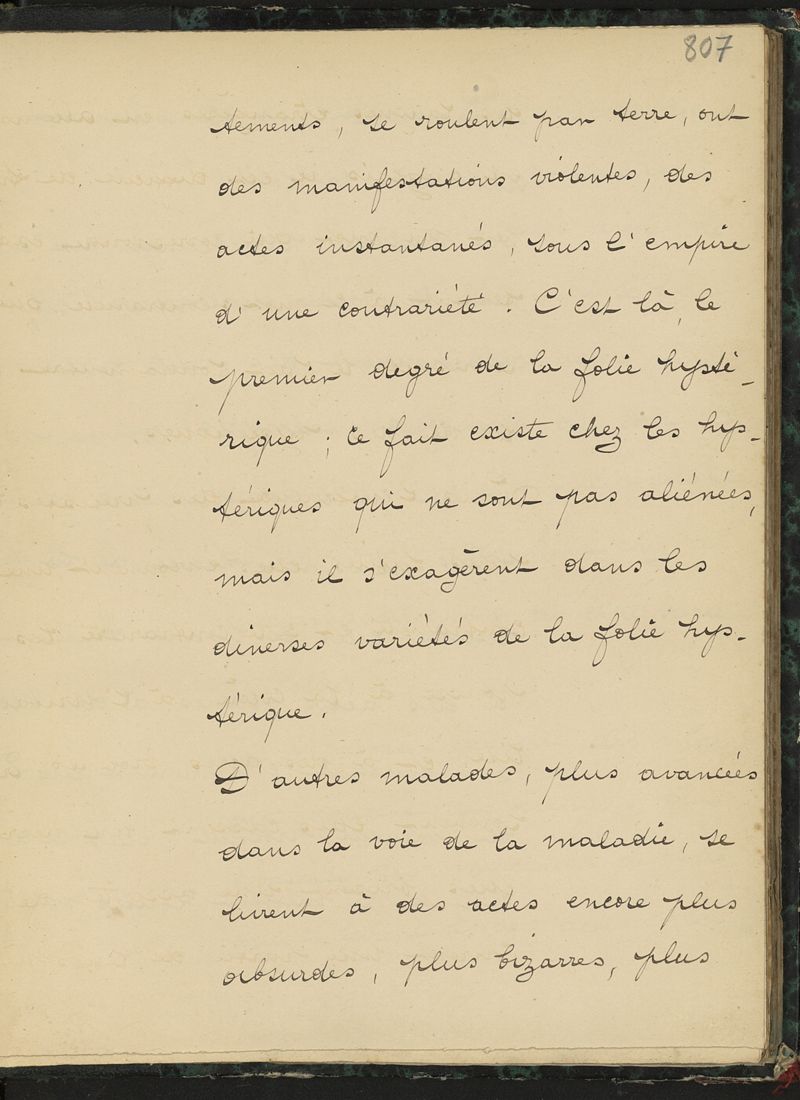 807
tements, se roulent par terre, ont
des manifestations violentes, des
actes instantanés, sous l'empire
d'une contrariété. C'est là, le
premier degré de la folie hysté-
rique ; ce fait existe chez les hys-
tériques qui ne sont pas aliénées,
mais il s'exagèrent dans les
diverses variétés de la folie hys-
térique.
D'autres malades, plus avancées
dans la voie de la maladie, se
livrent à des actes encore plus
absurdes, plus bizarres, plus